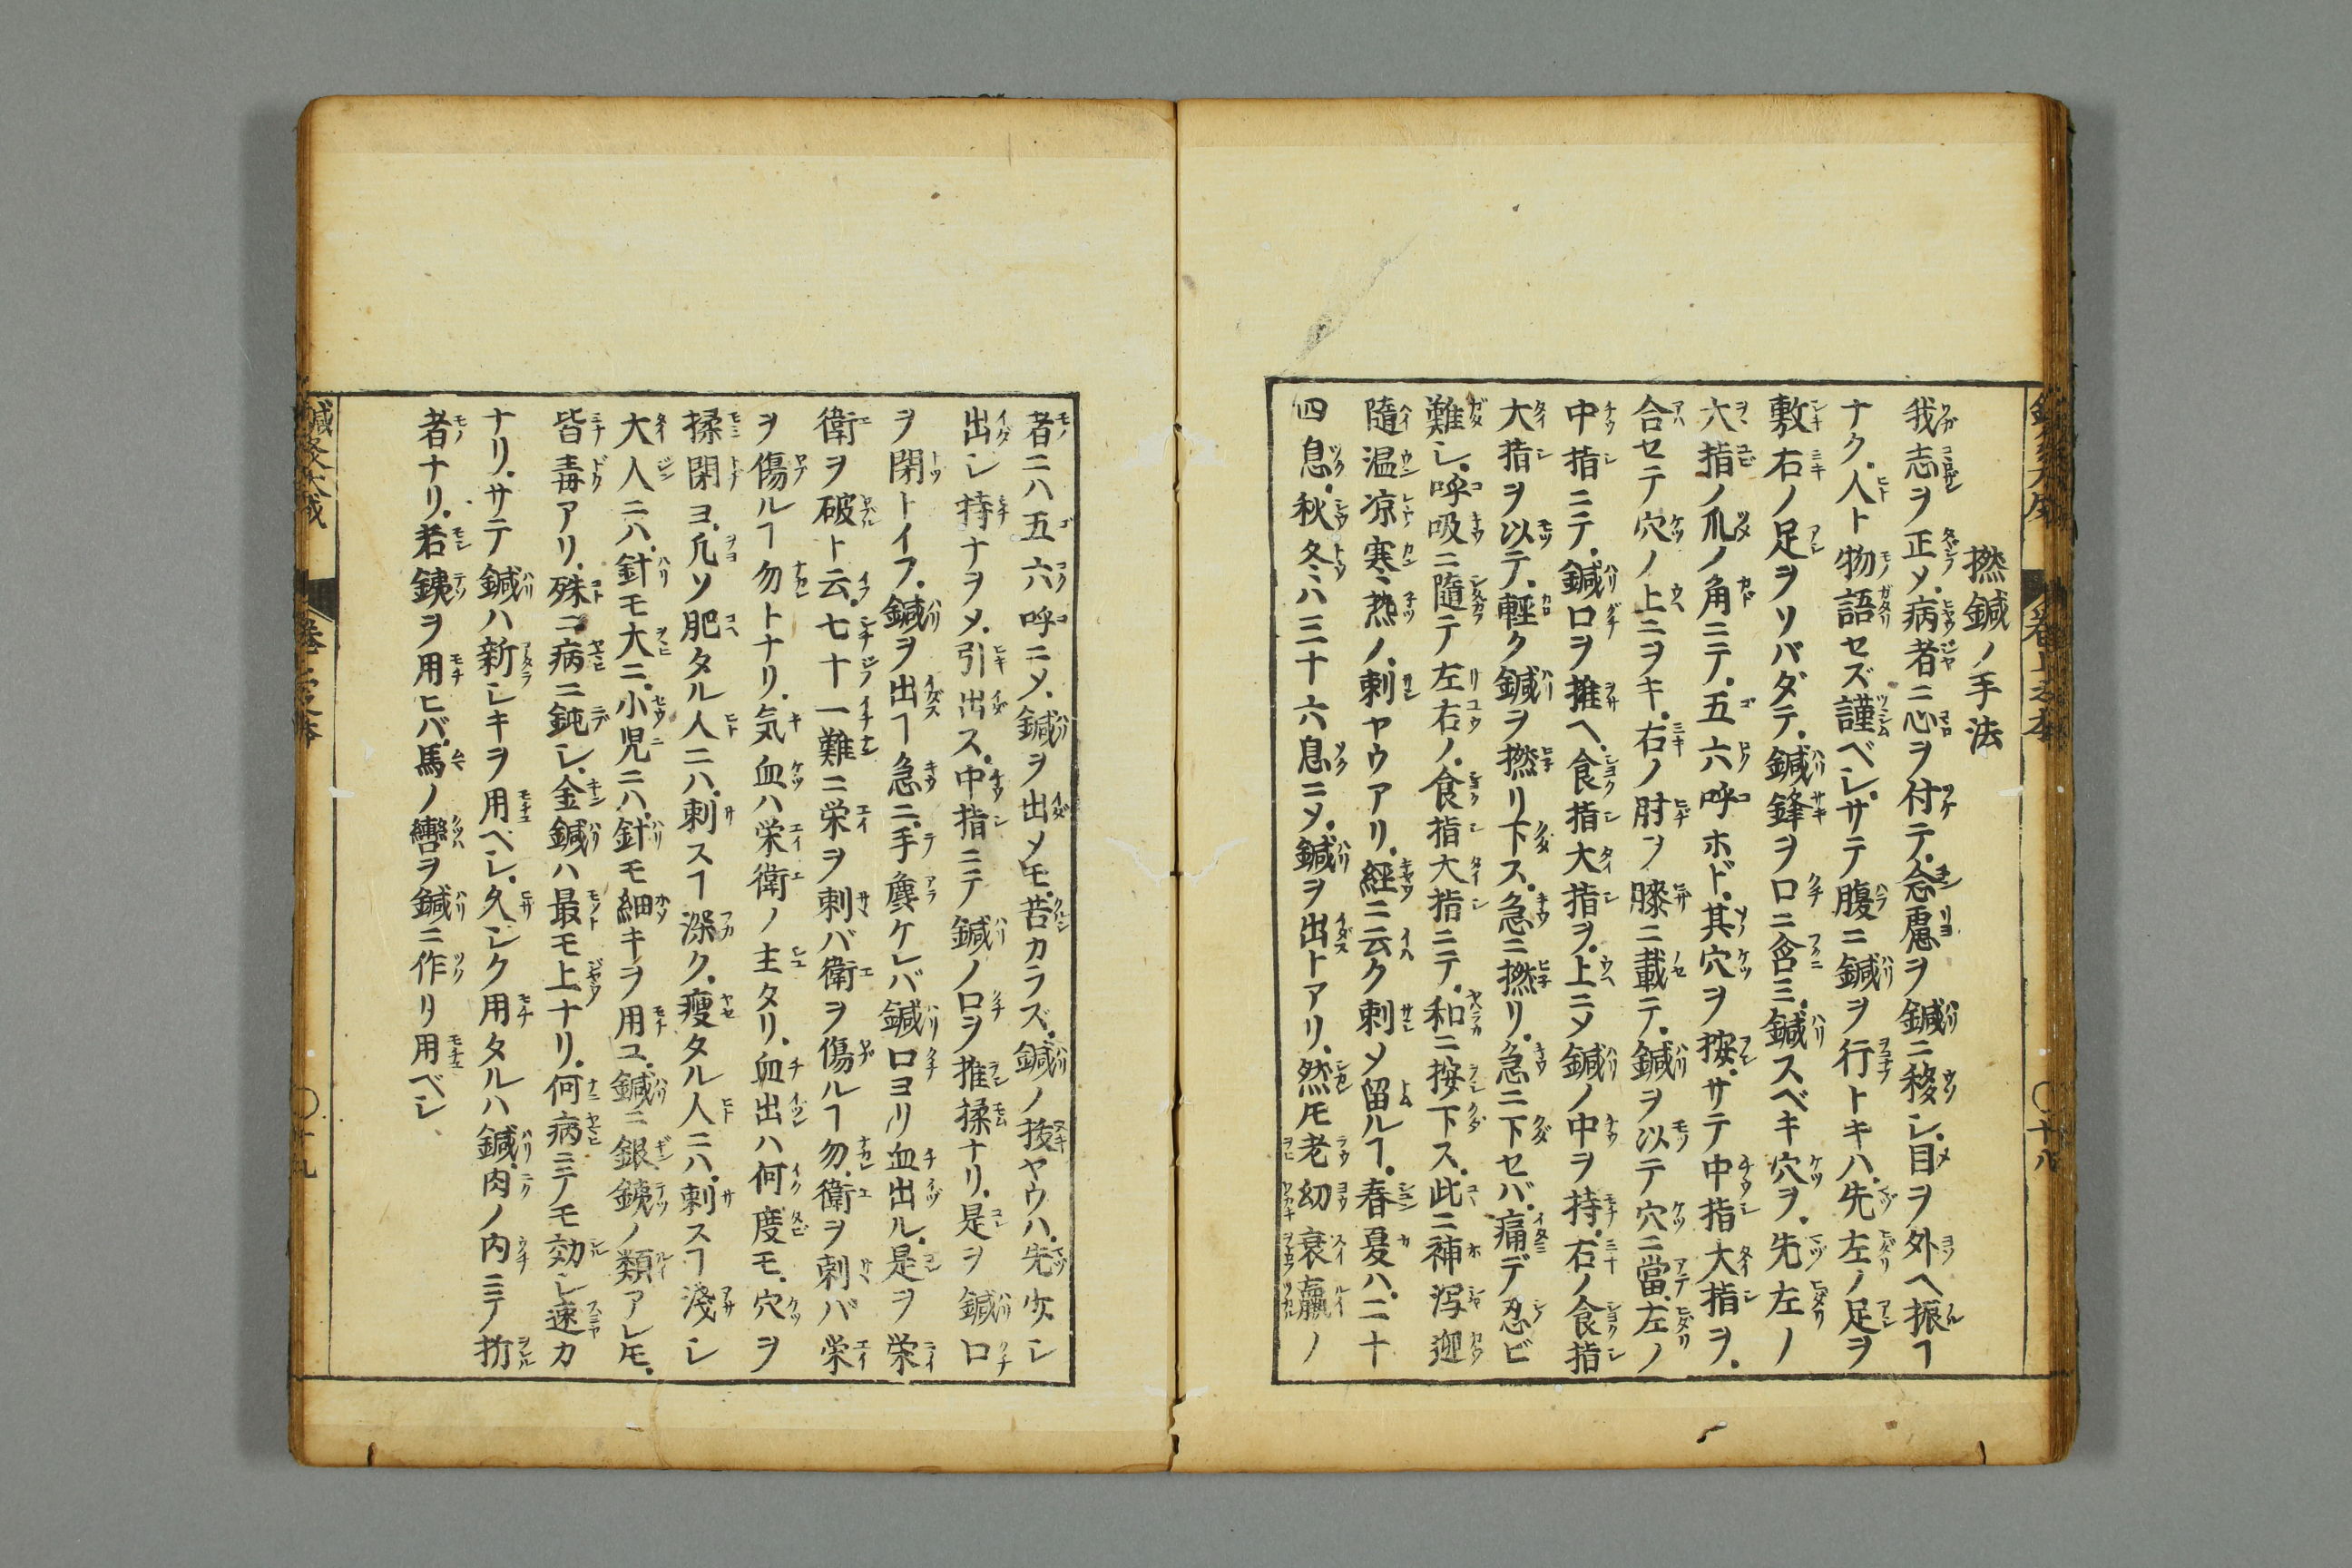 撚鍼ノ手法
我志ヲ正メ、病者ニ心ヲ付テ、念慮ヲ鍼ニ移シ、目ヲ外ヘ振ヿ
ナク、人ト物語セズ謹ベシ。サテ腹ニ鍼ヲ行トキハ、先左ノ足ヲ
敷右ノ足ヲソバダテ、鍼鋒ヲ口ニ含ミ、鍼スベキ穴ヲ、先左ノ
大指ノ爪ノ角ニテ、五六呼ホド、其穴ヲ按、サテ中指大指ヲ、
合セテ穴ノ上ニヲキ、右ノ肘ヲ膝ニ載テ、鍼ヲ以テ穴ニ當、左ノ
中指ニテ、鍼口ヲ推ヘ、食指大指ヲ、上ニメ鍼ノ中ヲ持、右ノ食指
大指ヲ以テ、輕ク鍼ヲ撚リ下ス、急ニ撚リ、急ニ下セバ、痛デ忍ビ
難シ、呼吸ニ隨テ左右ノ、食指大指ニテ、和ニ按下ス、此ニ補泻迎
隨温凉寒熱ノ、刺ヤウアリ、經ニ云ク刺メ留ルヿ、春夏ハ、二十
四息、秋冬ハ三十六息ニメ、鍼ヲ出トアリ、然ㇳモ老幼衰羸ノ
者ニハ五六呼ニメ、鍼ヲ出メモ、苦カラズ、鍼ノ抜ヤウハ、先少シ
出シ持ナヲメ、引出ス、中指ニテ鍼ノ口ヲ推揉ナリ、是ヲ鍼口
ヲ閉トイフ、鍼ヲ出ヿ急ニ、手麁ケレバ鍼口ヨリ血出ル、是ヲ栄
衛ヲ破ト云、七十一難ニ栄ヲ刺バ衛ヲ傷ルヿ勿、衛ヲ刺バ栄
ヲ傷ルヿ勿トナリ、気血ハ栄衛ノ主タリ、血出ハ何度モ、穴ヲ
揉閉ヨ、凢ソ肥タル人ニハ、刺スヿ深ク、瘦タル人ニハ、刺スヿ淺シ
大人ニハ、針モ大ニ、小児ニハ、針モ細キヲ用ユ、鍼ニ銀銕ノ類アレㇳモ、
皆毒アリ、殊ニ病ニ鈍シ、金鍼ハ最モ上ナリ、何病ニテモ効シ速カ
ナリ、サテ鍼ハ新シキヲ用ベシ、久シク用タルハ鍼、肉ノ内ニテ折
者ナリ、若銕ヲ用ヒバ、馬ノ轡ヲ鍼ニ作リ用ベシ、